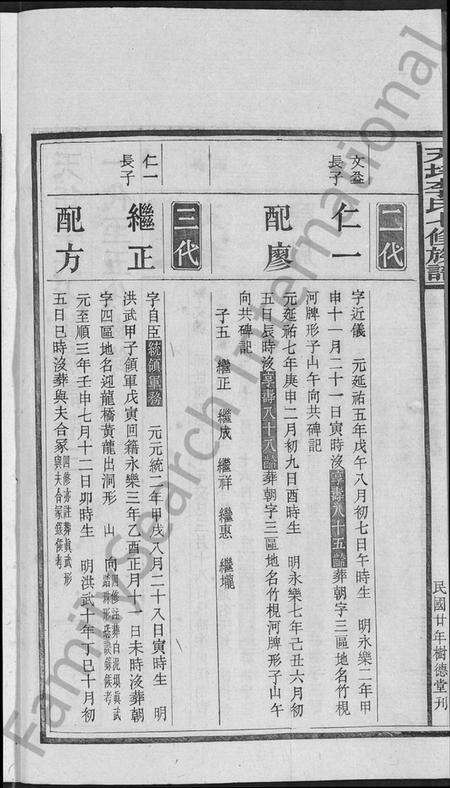 二代
文盈
長子
仁一
字近儀 元延祐五年戊午八月初七日午時生 明永樂二年甲
申十一月二十一日寅時沒享壽八十五齡葬朝字三區地名竹梘
河牌形子山午向共碑記
配廖
元延祐七年庚申二月初九日酉時生 明永樂七年己丑六月初
五日辰時沒享壽八十八齡葬朝字三區地名竹梘河牌形子山午
向共碑記
子五 繼正 繼成 繼祥 繼惠 繼壠
三代
仁一
長子
繼正
字自臣統領軍務 元元統二年甲戌八月二十八日寅時生 明
洪武甲子領軍戊寅回籍永樂三年乙酉正月十一日未時沒葬朝
字四區地名迎龍橋黃龍出洞形 山 向
配方
元至順三年壬申七月十二日卯時生 明洪武十年丁巳十月初
五日巳時沒葬與夫合冢
民國廿年樹德堂刊
FamilySearch International